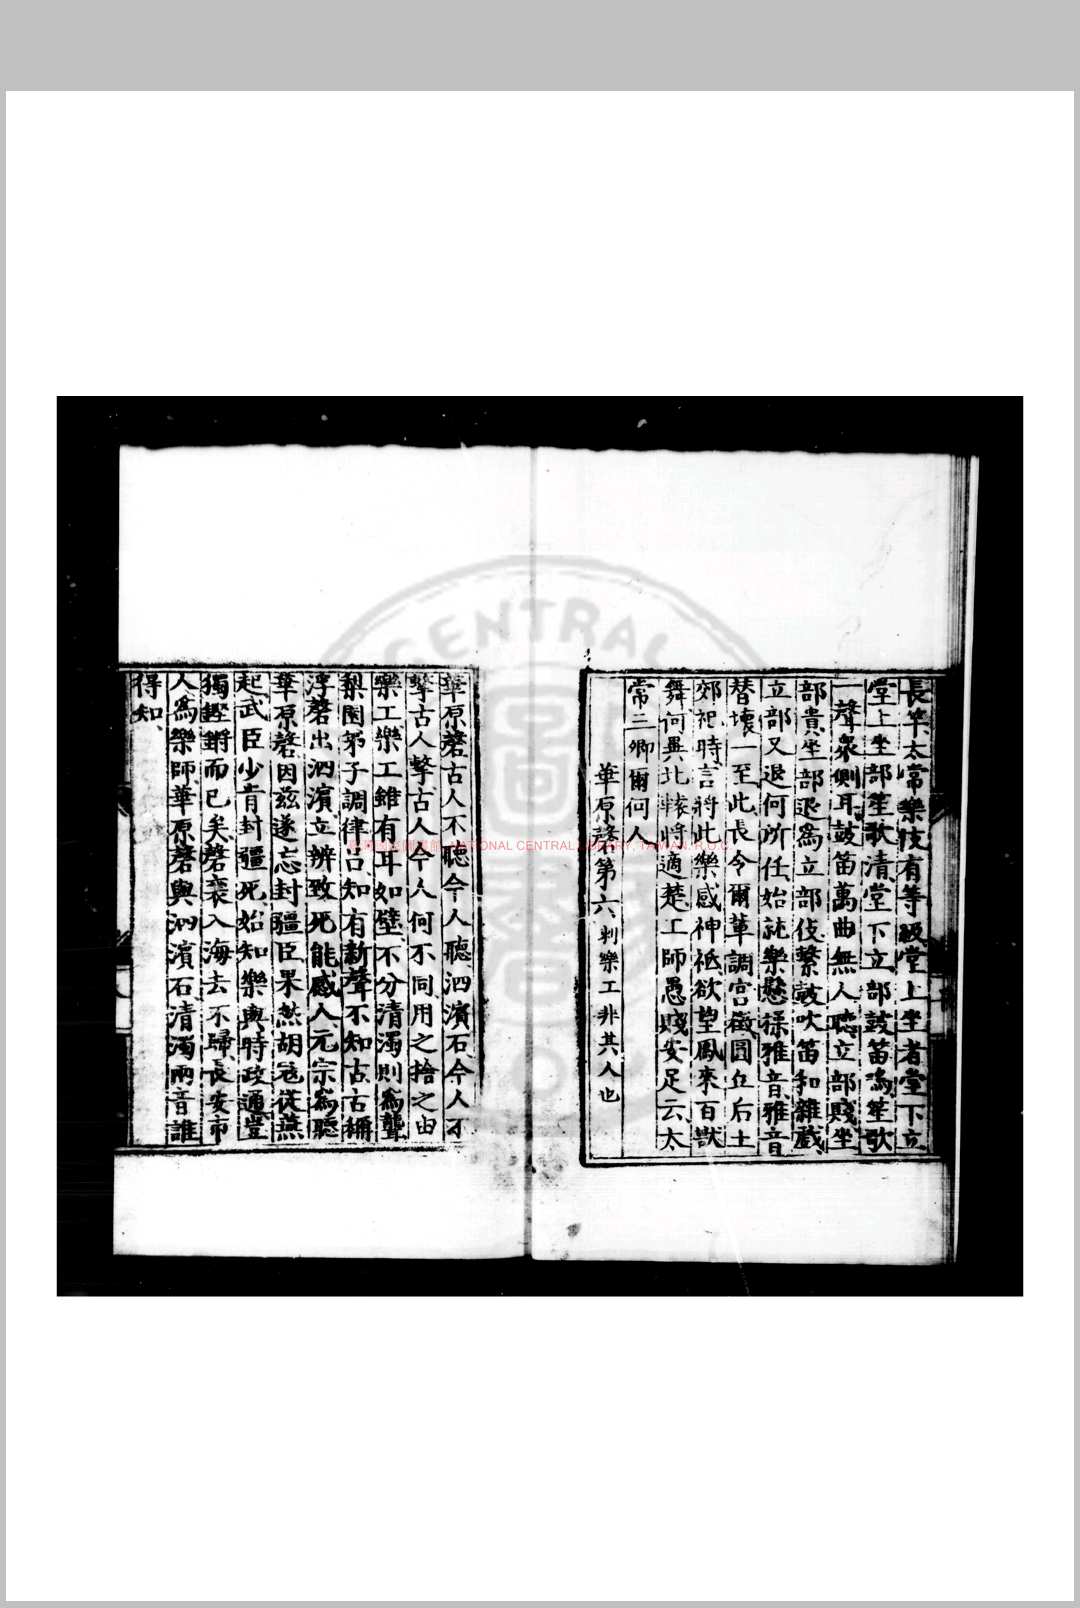 長竿太常樂伎有等級堂上坐者堂下立
堂上坐部笙歌清堂下立部鼓笛鳴笙歌
一聲衆側耳鼓笛萬曲無人聽立部賤坐
部貴坐部退為立部伎擊鼓吹笛和雜戲
立部又退何所任始就樂懸操雅音雅音
替壞一至此長令爾輩調宮徵圓丘后土
郊祀時言將此樂感神祗欲望鳳來百獸
舞何異北轅將適楚工師愚賤安足云太
常三卿爾何人
華原磬第六 刺樂工非其人也
華原磬古人不聽今人聽泗濱石今人不
擊古人擊古人今人何不同用之捨之由
樂工樂工雖有耳如壁不分清濁則為聾
梨園弟子調律呂知有新聲不知古古稱
浮磬出泗濱立辨致死能感人元宗為聽
華原磬因茲遂忘封疆臣果然胡寇從燕
起武臣少肯封疆死始知樂與時政通豈
獨鏗鏘而已矣磬襄入海去不歸長安市
人為樂師華原磬與泗濱石清濁兩音誰
得知
CENTRAL
NATIONAL CENTRAL LIBRARY, TAIWAN, R.O.C.